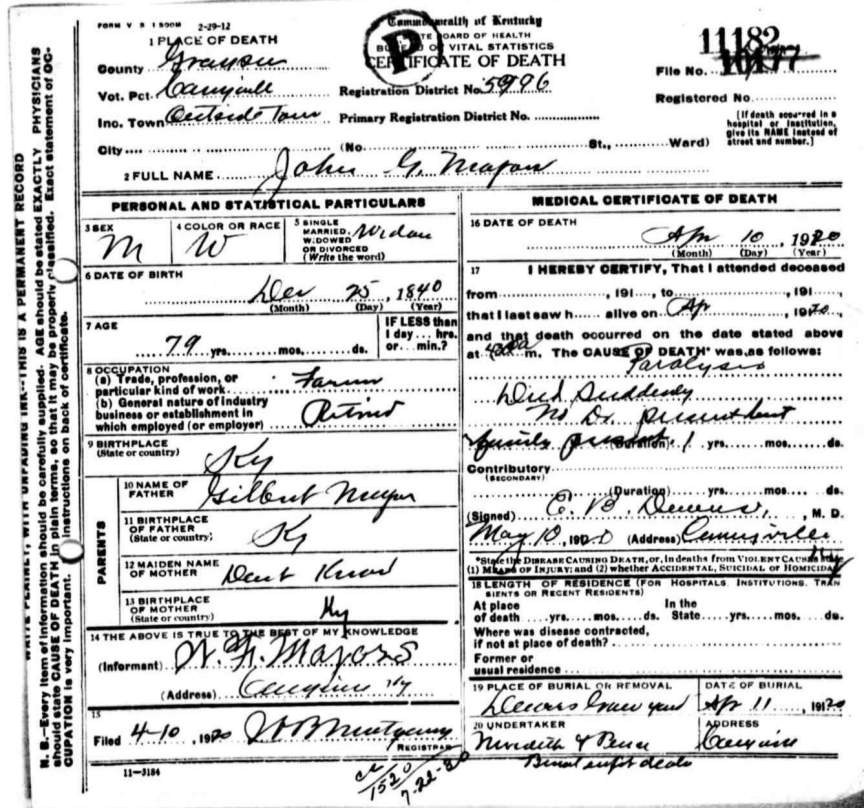 FORM V S 1 500M 2-29-12
Commonwealth of Kentucky
STATE BOARD OF HEALTH
BUREAU OF VITAL STATISTICS
CERTIFICATE OF DEATH
P
11182
File No.
Registered No
[If death occurred in a hospital or institution, give its NAME instead of street and number.]
1 PLACE OF DEATH
County Grayson
Vot. Pct. Caneyville Registration District No. 5996
Inc. Town Outside Town Primary Registration District No.
City (No St., Ward)
2 FULL NAME John G. Major
PERSONAL AND STATISTICAL PARTICULARS
3 SEX M
4 COLOR OR RACE W
5 SINGLE MARRIED, WIDOWED OR DIVORCED (Write the word)
6 DATE OF BIRTH
Dec 25, 1840
(Month) (Day) (Year)
7 AGE
79 yrs. mos. ds.
IF LESS than 1 day ... hrs. or ... min.?
8 OCCUPATION
(a) Trade, profession, or particular kind of work
(b) General nature of industry business or establishment in which employed (or employer) Retired
9 BIRTHPLACE
(State or country) Ky
PARENTS
10 NAME OF FATHER Gilbert Major
11 BIRTHPLACE OF FATHER (State or country) Ky
12 MAIDEN NAME OF MOTHER Dont Know
13 BIRTHPLACE OF MOTHER (State or country) Ky
14 THE ABOVE IS TRUE TO THE BEST OF MY KNOWLEDGE
(Informant) Majors
(Address) Ky
15
Filed 4-10, 1920
REGISTRAR
11-3184
7-22-20
MEDICAL CERTIFICATE OF DEATH
16 DATE OF DEATH
Apr 10, 1920
(Month) (Day) (Year)
17 I HEREBY CERTIFY, That I attended deceased
from , 191 , to , 191 ,
that I last saw h alive on Apr , 1920,
and that death occurred on the date stated above
at m. The CAUSE OF DEATH* was as follows:
Paralysis
Died Suddenly
No Dr. present but
family present (Duration) 1 yrs. mos. ds.
Contributory
(SECONDARY)
(Duration) yrs. mos. ds.
(Signed) C. B. , M. D.
May 10, 1920 (Address)
*State the DISEASE CAUSING DEATH, or, in deaths from VIOLENT CAUSES
(1) MEANS OF INJURY; and (2) whether ACCIDENTAL, SUICIDAL OR HOMICIDAL
18 LENGTH OF RESIDENCE (FOR HOSPITALS, INSTITUTIONS, TRANSIENTS OR RECENT RESIDENTS)
At place of death yrs. mos. ds. In the State yrs. mos. ds.
Where was disease contracted,
if not at place of death?
Former or
usual residence
19 PLACE OF BURIAL OR REMOVAL
DATE OF BURIAL
Apr 11, 1920
20 UNDERTAKER
ADDRESS
Meredith &
N. B.—Every item of information should be carefully supplied. AGE should be stated EXACTLY PHYSICIANS
should state CAUSE OF DEATH in plain terms, so that it may be properly classified. Exact statement of OC-
CUPATION is very important. instructions on back of certificate.
WRITE PLAINLY, WITH UNFADING INK--THIS IS A PERMANENT RECORD